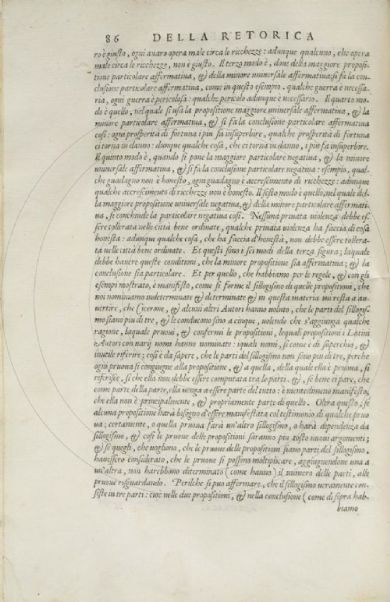 86 DELLA RETORICA
ro è giusto, ogni avaro opera male circa le ricchezze: adunque qualcuno, che opera
male circa le ricchezze, non è giusto. Il terzo modo è, dove della maggiore proposi-
tione particolare affirmativa, & della minore universale affirmativa si fa la con-
clusione particolare affirmativa, come in questo esempio, qualche guerra è necessa-
ria, ogni guerra è pericolosa: qualche pericolo adunque è necessario. Il quarto mo-
do è quello, nel quale si fa la propositione maggiore universale affirmativa, & la
minore particolare affirmativa, & si fa la conclusione particolare affirmativa
così: ogni prosperità di fortuna i più fa insuperbire, qualche prosperità di fortuna
ci torna in danno: dunque qualche cosa, che ci torna in danno, i più fa insuperbire.
Il quinto modo è, quando si pone la maggiore particolare negativa, & la minore
universale affirmativa, & si fa la conclusione particolare negativa: esempio, qual-
che guadagno non è honesto, ogni guadagno è accrescimento di ricchezze: adunque
qualche accrescimento di ricchezze non è honesto. Il sesto modo è quello, nel quale del-
la maggiore propositione universale negativa, & della minore particolare affirmati-
va, si conchiude la particolare negativa così. Nessuna privata violenza debbe es-
sere tollerata nelle città bene ordinate, qualche privata violenza ha faccia di cosa
honesta: adunque qualche cosa, che ha faccia d'honestà, non debbe essere tollera-
ta nelle città bene ordinate. Et questi sono i sei modi della terza figura; la quale
debbe havere queste conditioni, che la minore propositione sia affirmativa; & la
conclusione sia particolare. Et per quello, che habbiamo per le regole, & con gli
esempi mostrato, è manifesto, come si formi il sillogismo di quelle propositioni, che
noi nominiamo indeterminate & determinate & in questa materia mi resta a av-
vertire, che Cicerone, & alcuni altri Autori hanno voluto, che le parti del sillogis-
mo siano più di tre, & le conducono sino a cinque, volendo che s'aggiunga qualche
ragione, la quale pruovi, & confermi le propositioni, le quali propositioni i Latini
Autori con varij nomi hanno nominato: i quali nomi, si come è di superchio, &
inutile riferire; così è da sapere, che le parti del sillogismo non sono più di tre, perche
ogni pruova si congiugne alla propositione, & a quella, della quale ella è pruova, si
riferisce, si che ella non debbe essere computata tra le parti. &, se bene ci pare, che
come parte della parte, ella venga a essere parte del tutto: è nientedimeno manifesto,
che ella non è principalmente, & propriamente parte di quello. Oltra questo, se
alcuna propositione harà bisogno d'essere manifestata col testimonio di qualche pruo-
va; certamente, o quella pruova sarà un'altro sillogismo, o harà dependenza da
sillogismo, & così le pruove delle propositioni saranno più tosto nuovi argomenti;
& se quegli, che vogliono, che le pruove delle propositioni siano parti del sillogismo,
havessero considerato, che le pruove si possono moltiplicare, aggiugnendone una a
un'altra, mai harebbono determinato (come hanno) il numero delle parti, alle
pruove risguardando. Perilche si può affermare, che il sillogismo veramente con-
siste in tre parti: cioè nelle due propositioni, & nella conclusione (come di sopra hab-
biamo